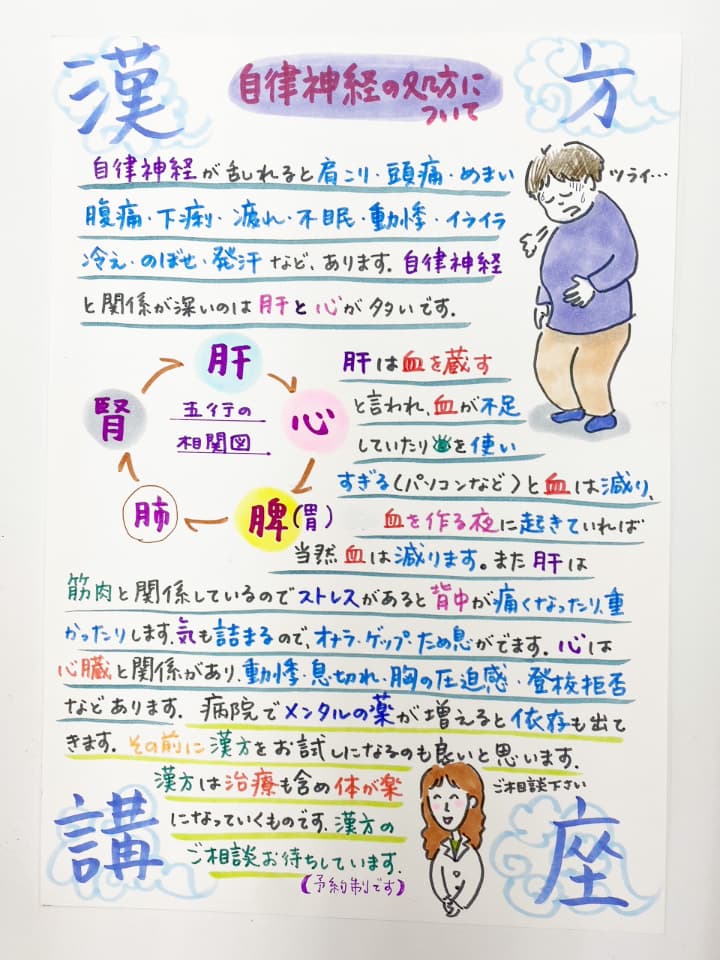 漢方
自律神経の処方に
ついて
自律神経が乱れると肩こり・頭痛・めまい
ツライ…
腹痛・下痢・疲れ・不眠・動悸・イライラ
冷え・のぼせ・発汗など、あります。自律神経
と関係が深いのは肝と心が多いです。
肝
心
脾(胃)
肺
腎
五行の
相関図
肝は血を蔵す
と言われ、血が不足
していたり👁を使い
すぎる(パソコンなど)と血は減り、
血を作る夜に起きていれば
当然血は減ります。また肝は
筋肉と関係しているのでストレスがあると背中が痛くなったり、重
かったりします。気も詰まるので、オナラ・ゲップ・ため息がでます。心は
心臓と関係があり、動悸・息切れ・胸の圧迫感・登校拒否
などあります。病院でメンタルの薬が増えると依存も出て
きます。その前に漢方をお試しになるのも良いと思います。
漢方は治療も含め体が楽
ご相談下さい
になっていくものです。漢方の
ご相談お待ちしています。
(予約制です)
講座